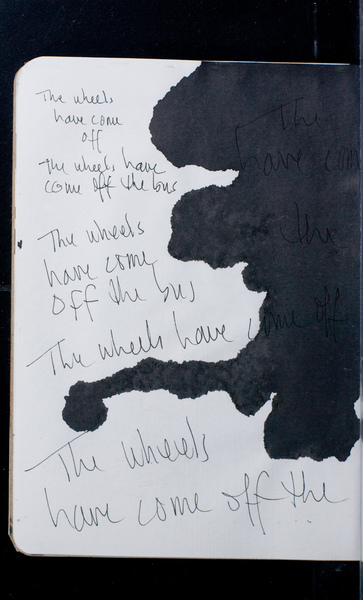 The wheels
have come
off
The wheels have
come off the bus
The
have com
The wheels
have come
the
off the bus
The wheels have come off
The wheels
have come off the